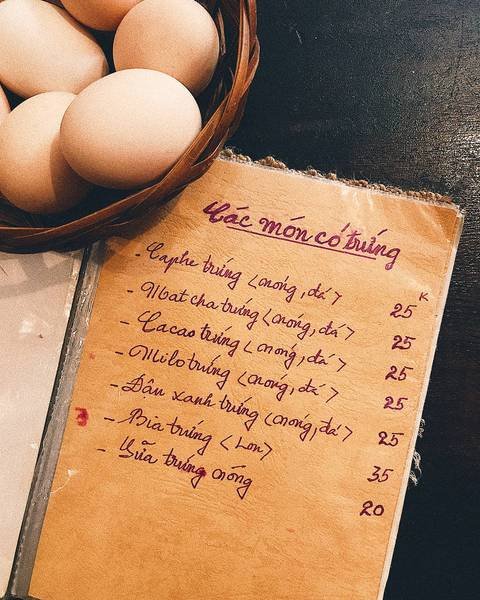 Các món có trứng
- Caphe trứng <nóng, đá> 25K
- Matcha trứng <nóng, đá> 25
- Cacao trứng <nóng, đá> 25
- Milo trứng <nóng, đá> 25
- Đâu xanh trứng <nóng, đá> 25
- Bia trứng <Lon> 35
- Sữa trứng nóng 20